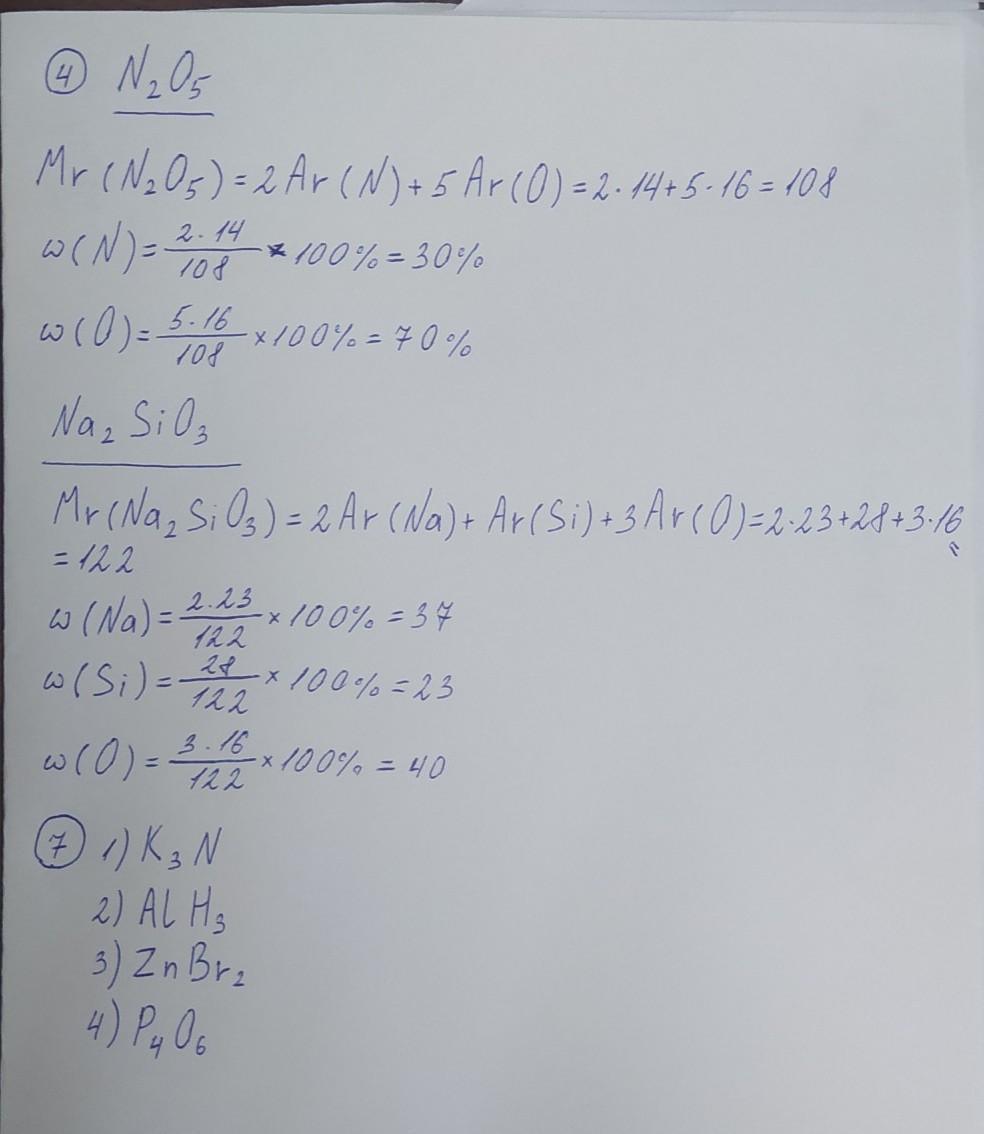 ④ N₂O₅
Mr (N₂O₅) = 2 Ar (N) + 5 Ar (O) = 2·14+5·16 = 108
ω(N) = 2·14/108 × 100% = 30%
ω(O) = 5·16/108 × 100% = 70%
Na₂SiO₃
Mr (Na₂SiO₃) = 2 Ar (Na) + Ar (Si) + 3 Ar (O) = 2·23+28+3·16 =
= 122
ω(Na) = 2·23/122 × 100% = 37
ω(Si) = 28/122 × 100% = 23
ω(O) = 3·16/122 × 100% = 40
⑦ 1) K₃N
2) AlH₃
3) ZnBr₂
4) P₄O₆